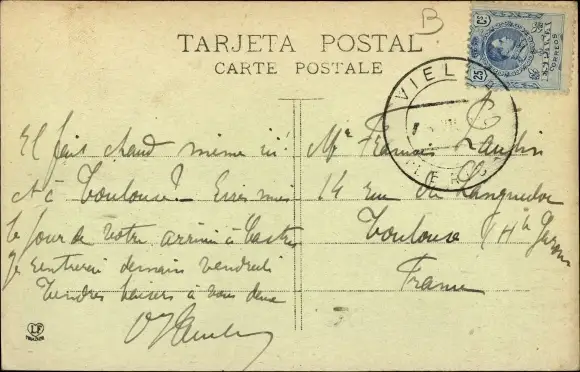 B
TARJETA POSTAL
CARTE POSTALE
25
25
CORREOS
VIELLA
LERIDA
Il fait chaud même ici
et à Toulouse? Ecris moi
le jour de votre arrivée à Castres
Je rentrerai demain vendredi
Tendres baisers à vous deux
Mr François
14 rue du Languedoc
Toulouse (Hte Garonne
France
LF